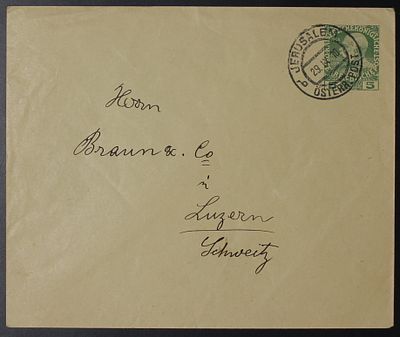 JERUSALEM
29. IX.
ÖSTERR. POST
5
Herrn
Braun & Co
in
Luzern
Schweitz